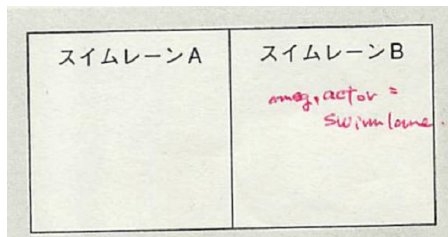 スイムレーンA
スイムレーンB
actor =
Swimlane.